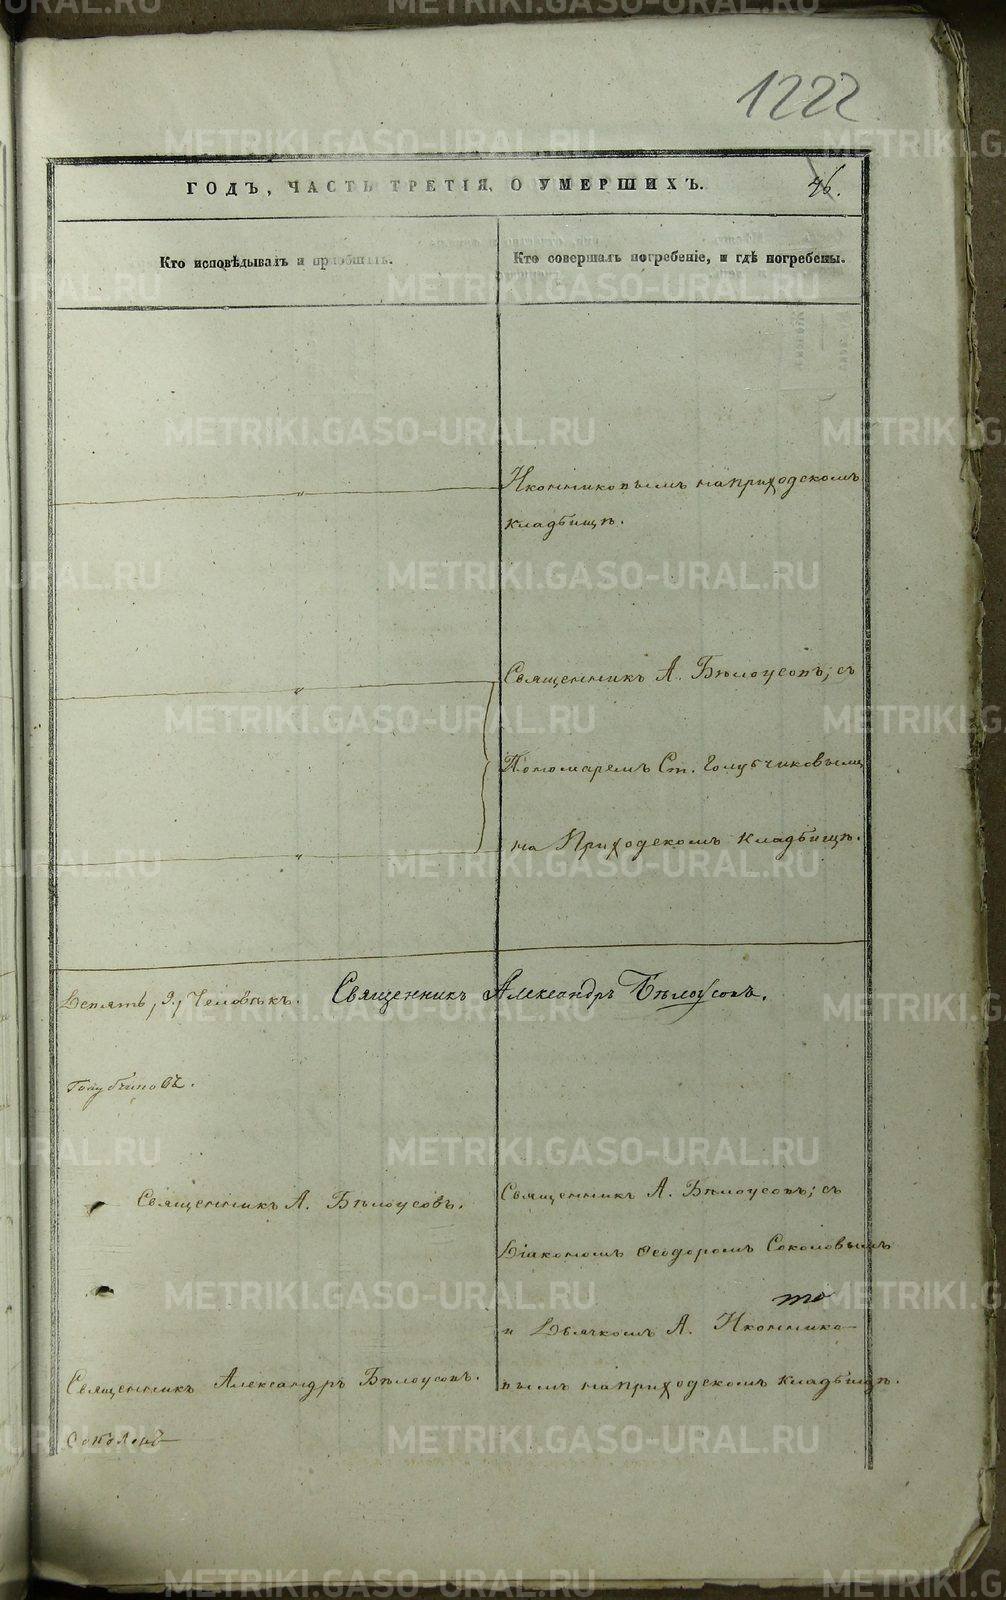 1222
ГОДЪ, ЧАСТЬ ТРЕТІЯ, О УМЕРШИХЪ.
46.
Кто исповѣдывалъ и пріобщалъ.
Кто совершалъ погребеніе, и гдѣ погребены.
Иконниковымъ на приходскомъ
кладбищѣ.
Священникъ А. Бѣлоусовъ; съ
Пономаремъ Ст. Голубчиковымъ
на Приходскомъ кладбищѣ.
Девять, 9, Человѣкъ. Священникъ Александръ Бѣлоусовъ.
Голубчиковъ.
Священникъ А. Бѣлоусовъ.
Священникъ А. Бѣлоусовъ; съ
Діакономъ Ѳеодоромъ Соколовымъ
то
и Дьячкомъ А. Иконнико-
вымъ на приходскомъ кладбищѣ.
Священникъ Александръ Бѣлоусовъ.
Соколовъ
METRIKI.GASO-URAL.RU